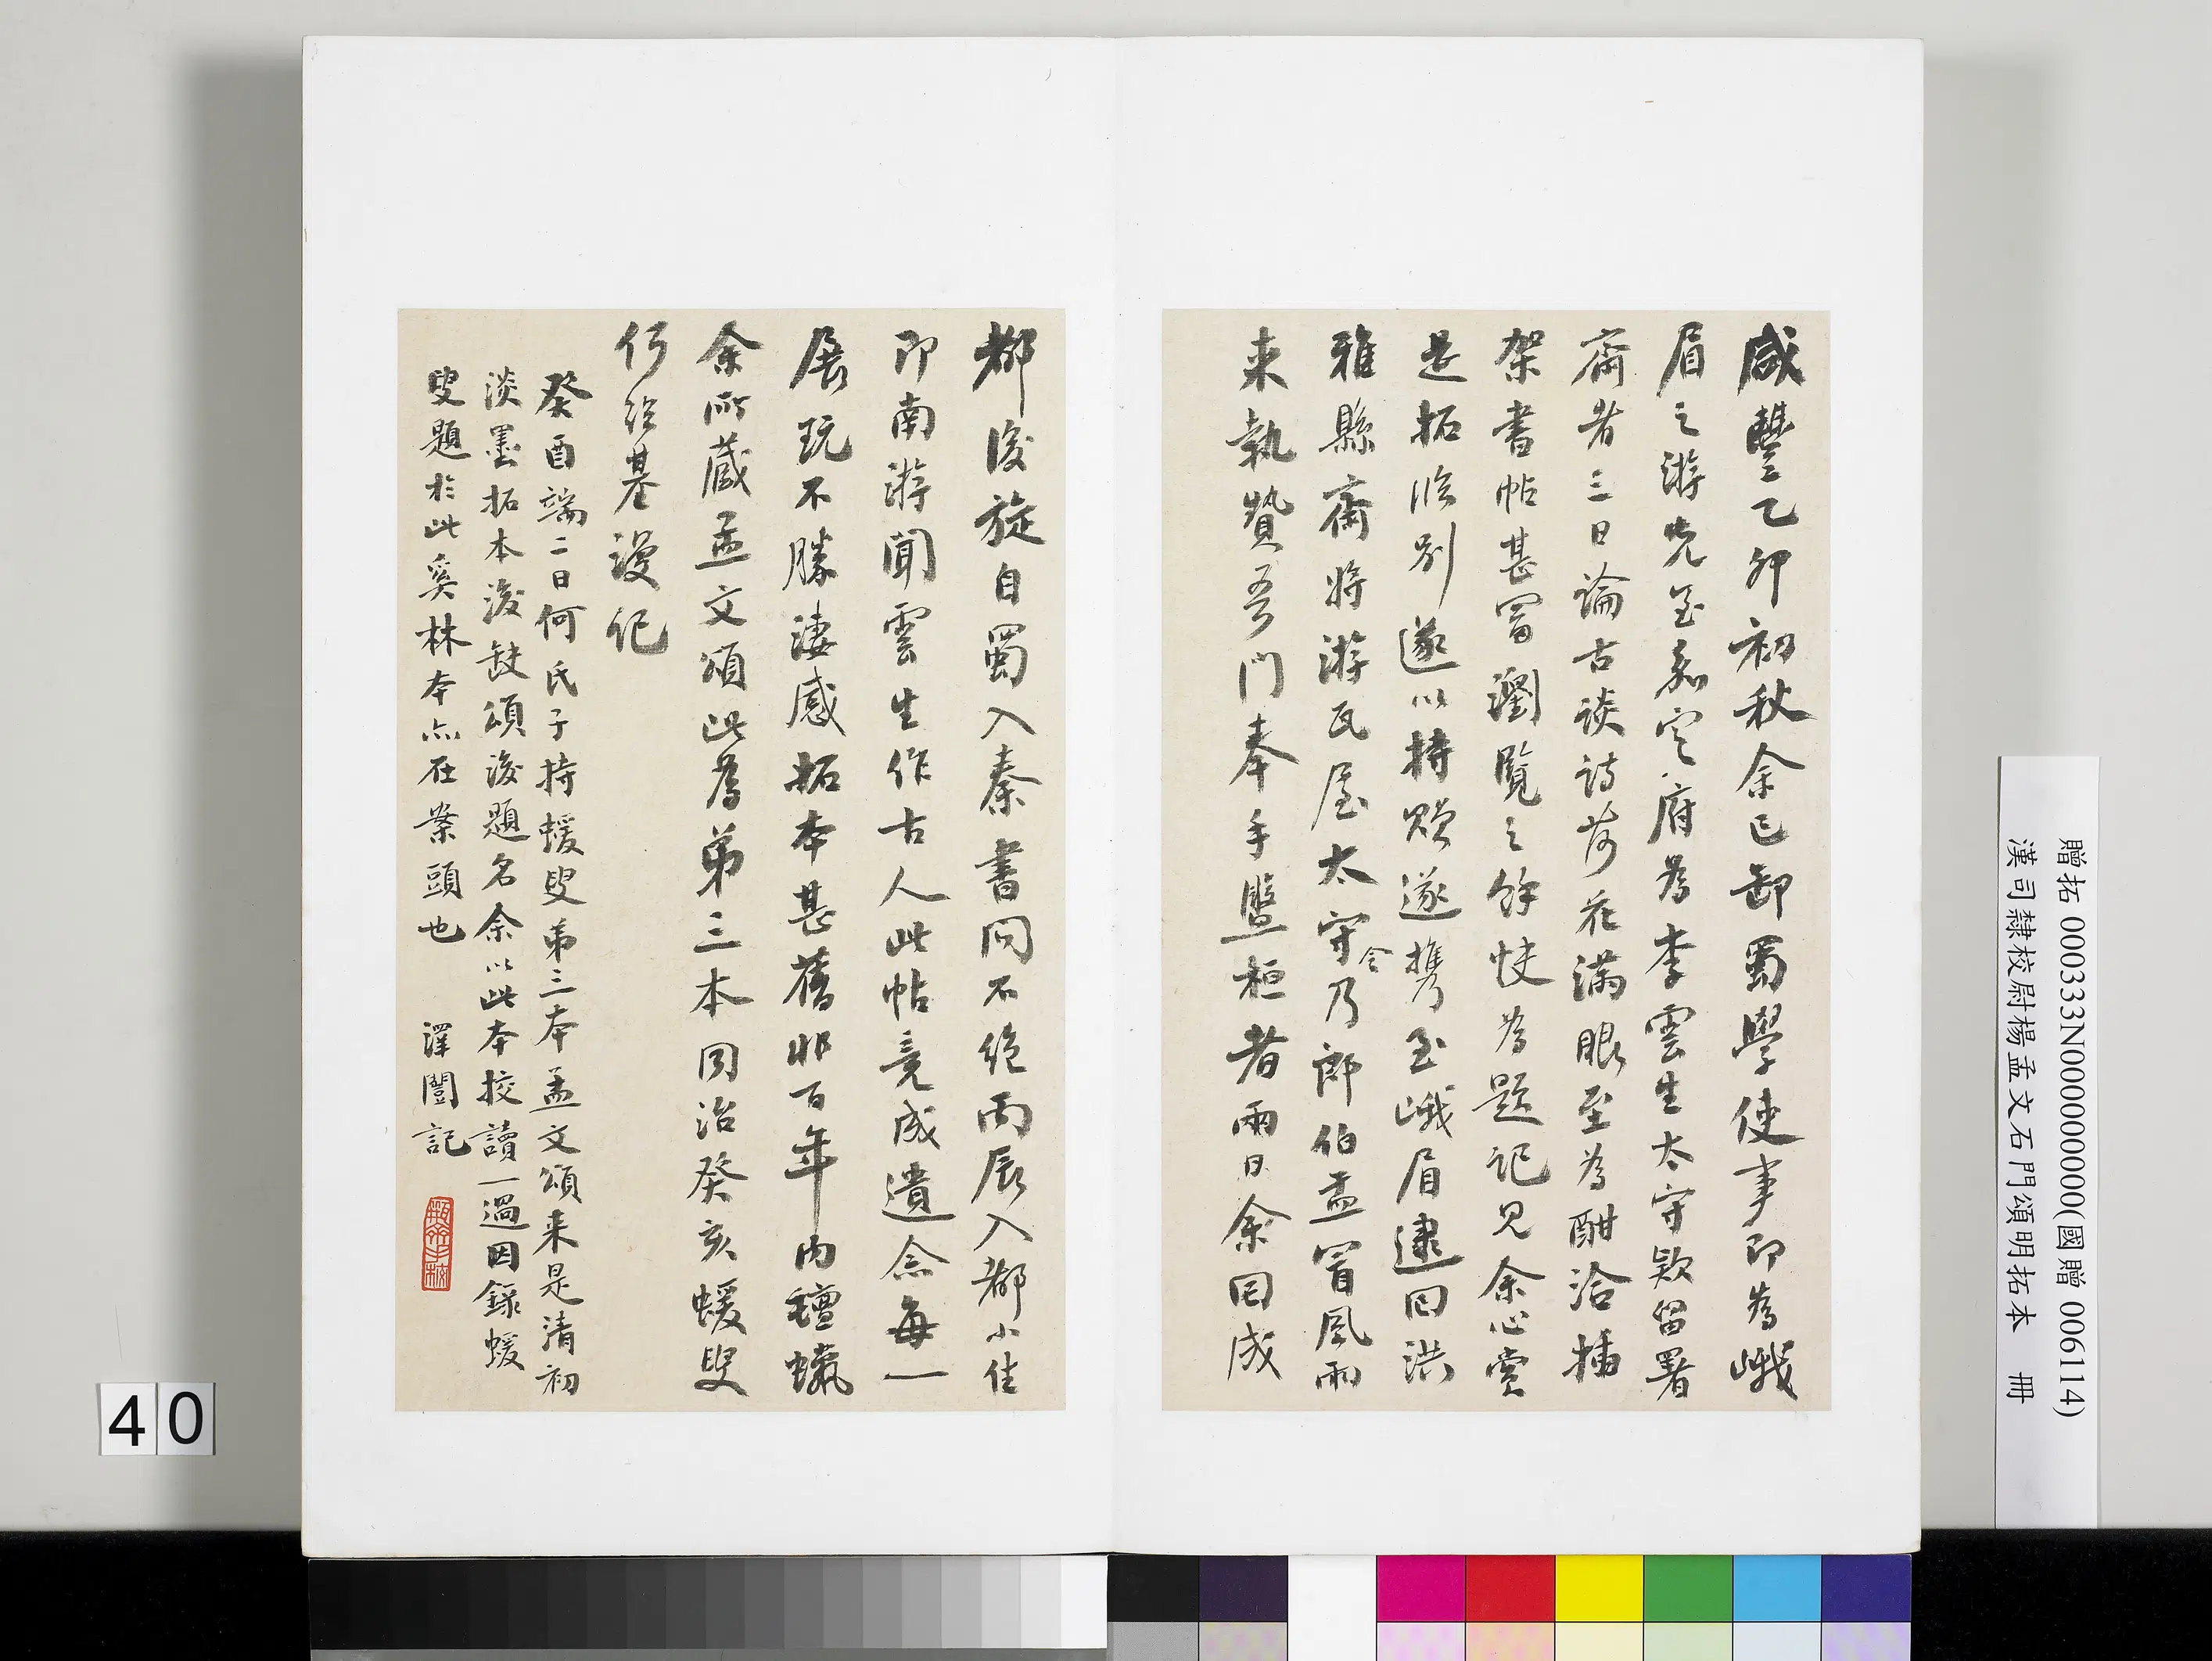 咸豐乙卯初秋余已卸蜀學使事即為峨
眉之游先至嘉定府為李雲生太守款留署
齋者三日論古談詩荷花滿眼至為酣洽插
架書帖甚富瀏覽之餘快為題記見余心賞
是拓臨別遂以持贈遂攜至峨眉逮回洪
雅縣齋將游瓦屋太守令乃郎伯孟冒風雨
来執贄吾門奉手盤桓者兩日余回成
都後旋自蜀入秦書問不絕丙辰入都小住
即南游聞雲生作古人此帖竟成遺念每一
展玩不勝淒感拓本甚舊非百年內氊蠟
余所藏孟文頌此為弟三本同治癸亥蝯叟
何紹基漫記
癸酉端二日何氏子持蝯叟弟三本孟文頌来是清初
淡墨拓本後缺頌後題名余以此本挍讀一過因錄蝯
叟題於此奚林本亦在案頭也 澤闓記
贈拓 000333N000000000(國贈 006114)
漢司隸校尉楊孟文石門頌明拓本 冊
40